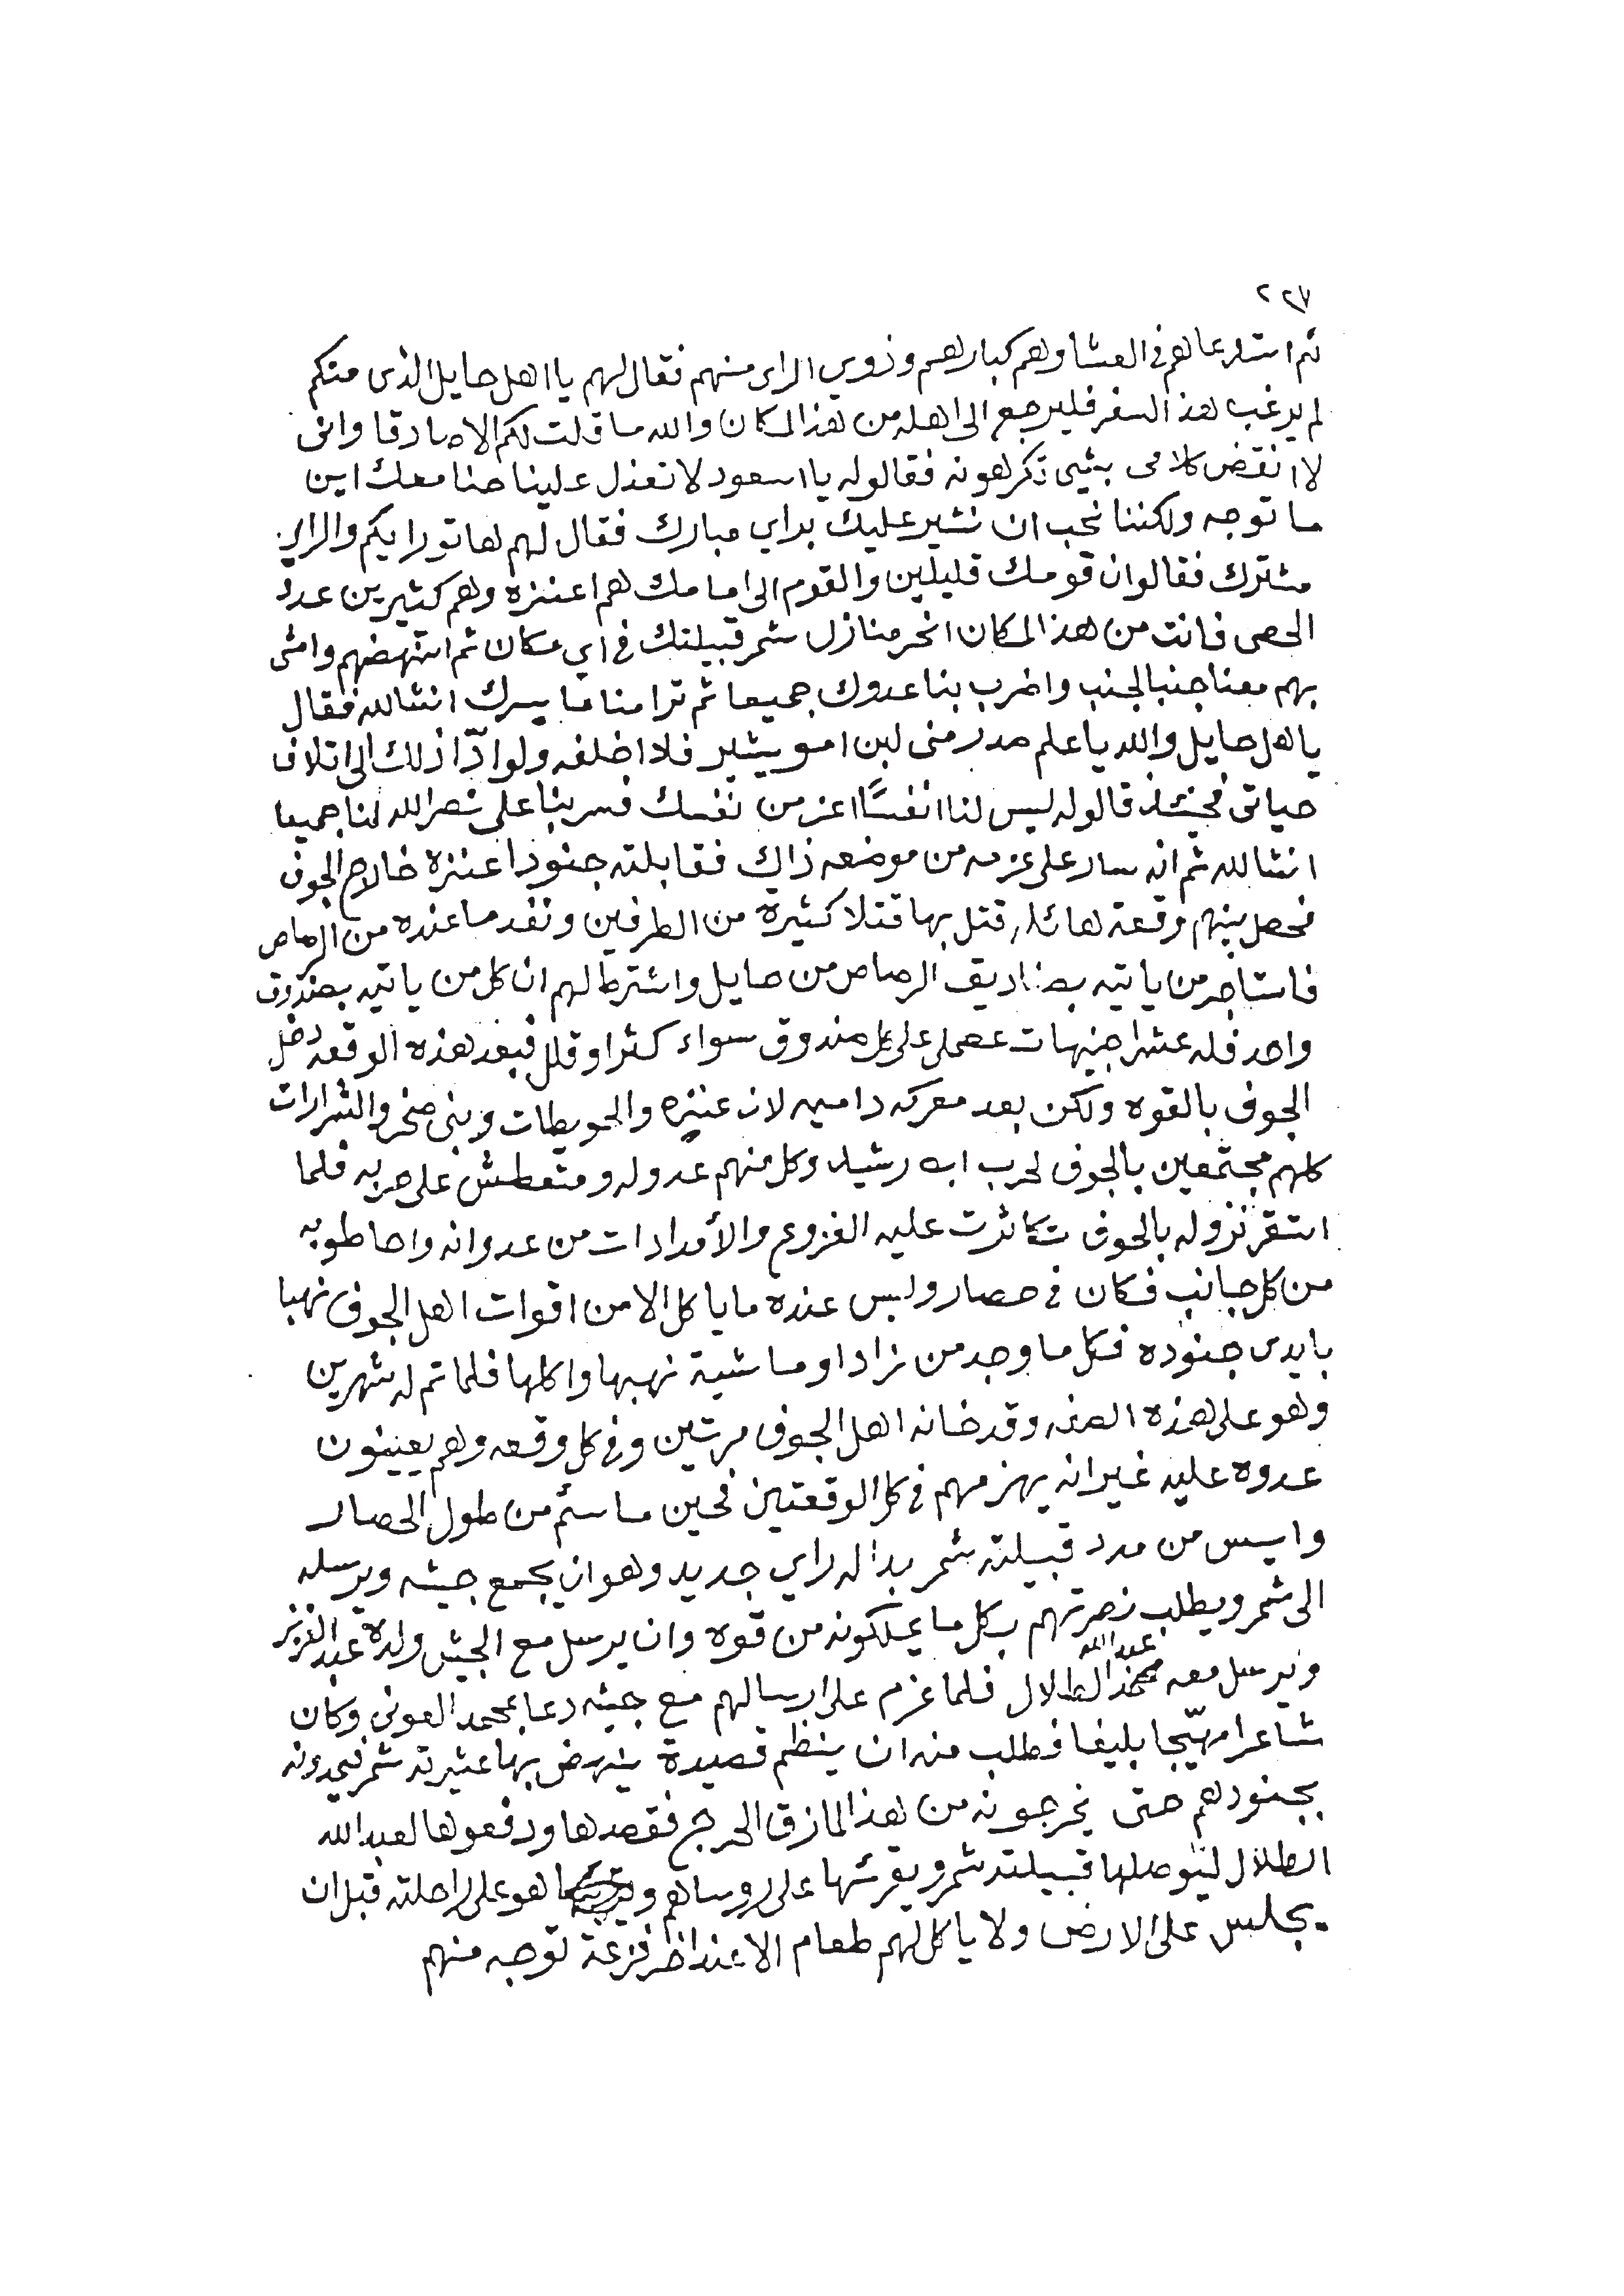 ٢٢٧
ثم استدعاهم في العشا وهم كبارهم وذوي الراى منهم فقال لهم يا اهل حايل الذى منكم
لم يرغب هذ السفر فليرجع الى اهله من هذ المكان والله ما قلت لكم الا صادقا وانى
لا انقض كلامى بشيى تكرهونه فقالوله يا اسعود لا تعذل علينا حنا معك اين
ما توجه ولكننا نحب ان نشير عليك براي مبارك فقال لهم هاتو رايكم والراي
مشترك فقالوان قومك قليلين والقوم الى امامك هم اعنزه وهم كثيرين عدد
الحصى فانت من هذ المكان انحر منازل شمر قبيلتك في اي مكان ثم استنهضهم وامشى
بهم معنا جنبا لجنب واضرب بنا عدوك جميعا ثم ترا منا ما يسرك انشالله فقال
يا هل حايل والله يا علم صدر منى لبن امو يشير فلا اخلفه ولو ادّا ذلك الى اتلاف
حياتى فحينئذ قالوله ليس لنا انفسًا اعز من نفسك فسر بنا على نصر الله لنا جميعا
انشالله ثم انه سار على عزمه من موضعه ذاك فقابلته جنود اعنزة خارج الجوف
فحصل بينهم وقعة هائله قتل بها قتلا كثيرة من الطرفين ونفد ما عنده من الرصاص
فاستاجر من ياتيه بصناديق الرصاص من حايل واشترط لهم ان كل من ياتيه بصندوق
واحد فله عشر اجنيهات عصملى على كل صندوق سواء كثر او قلل فبعد هذه الوقعه دخل
الجوف بالقوه ولكن بعد معركه داميه لان عنزه والحويطات وبنى صخر والشرارات
كلهم مجتمعين بالجوف لحرب ابن رشيد وكل منهم عدو له ومتعطش على حربه فلما
استقر نزوله بالجوف تكاثرت عليه الغزوع والأمدادات من عدوانه واحاطو به
من كل جانب فكان في حصار وليس عنده ما ياكل الا من اقوات اهل الجوف نهبا
بايدى جنوده فكل ما وجد من زاد او ماشية نهبها واكلها فلما تم له شهرين
وهو على هذه الصفه وقد خانه اهل الجوف مرتين وفي كل وقعه وهم يعينون
عدوه عليه غير انه يهزمهم في كل الوقعتين فحين ما سئم من طول الحصار
وايس من مدد قبيلته شمر بدا له راي جديد وهو ان يجمع جيشه ويرسله
الى شمر ويطلب نصرتهم بكل ما يملكونه من قوه وان يرسل مع الجيش ولده عبد العزيز
ويرسل معه عبد الله الطلال فلما عزم على ارسالهم مع جيشه دعا بمحمد العونى وكان
شاعرا مهيّجا بليغا فطلب منه ان ينظم قصيدة ينهض بها عشيرته شمر فيمدونه
بجنودهم حتى يخرجونه من هذ المازق الحرج فقصدها ودفعوها لعبد الله
الطلال ليوصلها قبيلته شمر ويقرئها على روساهم و هو على راحلته قبل ان
يجلس على الارض ولا ياكل لهم طعام الا عند اخر فزعة توجه منهم